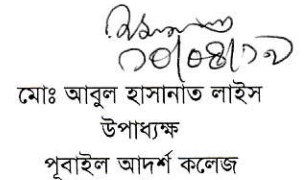 মোঃ আবুল হাসানাত লাইস
উপাধ্যক্ষ
পূবাইল আদর্শ কলেজ